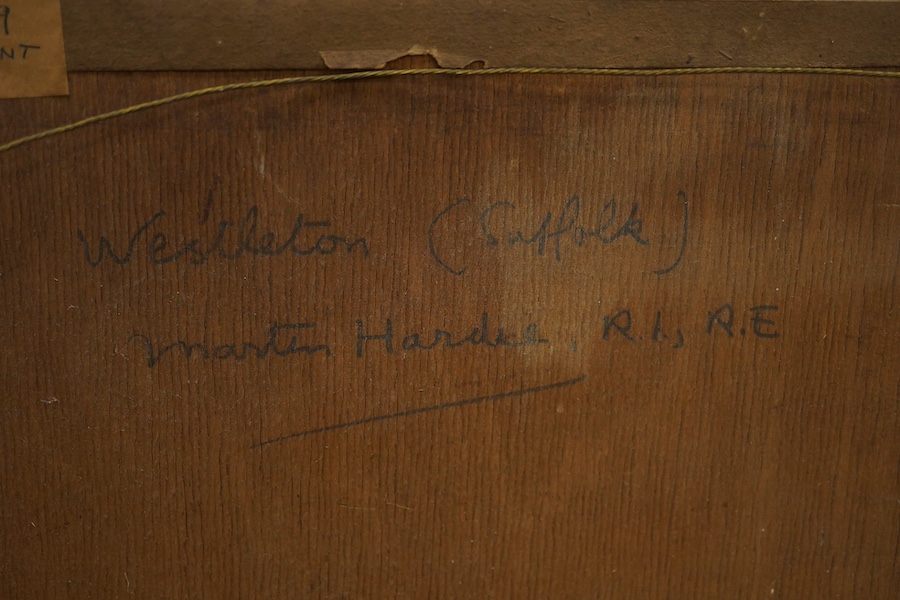 9
NT
Westleton (Suffolk)
Martin Hardie, R.I., R.E